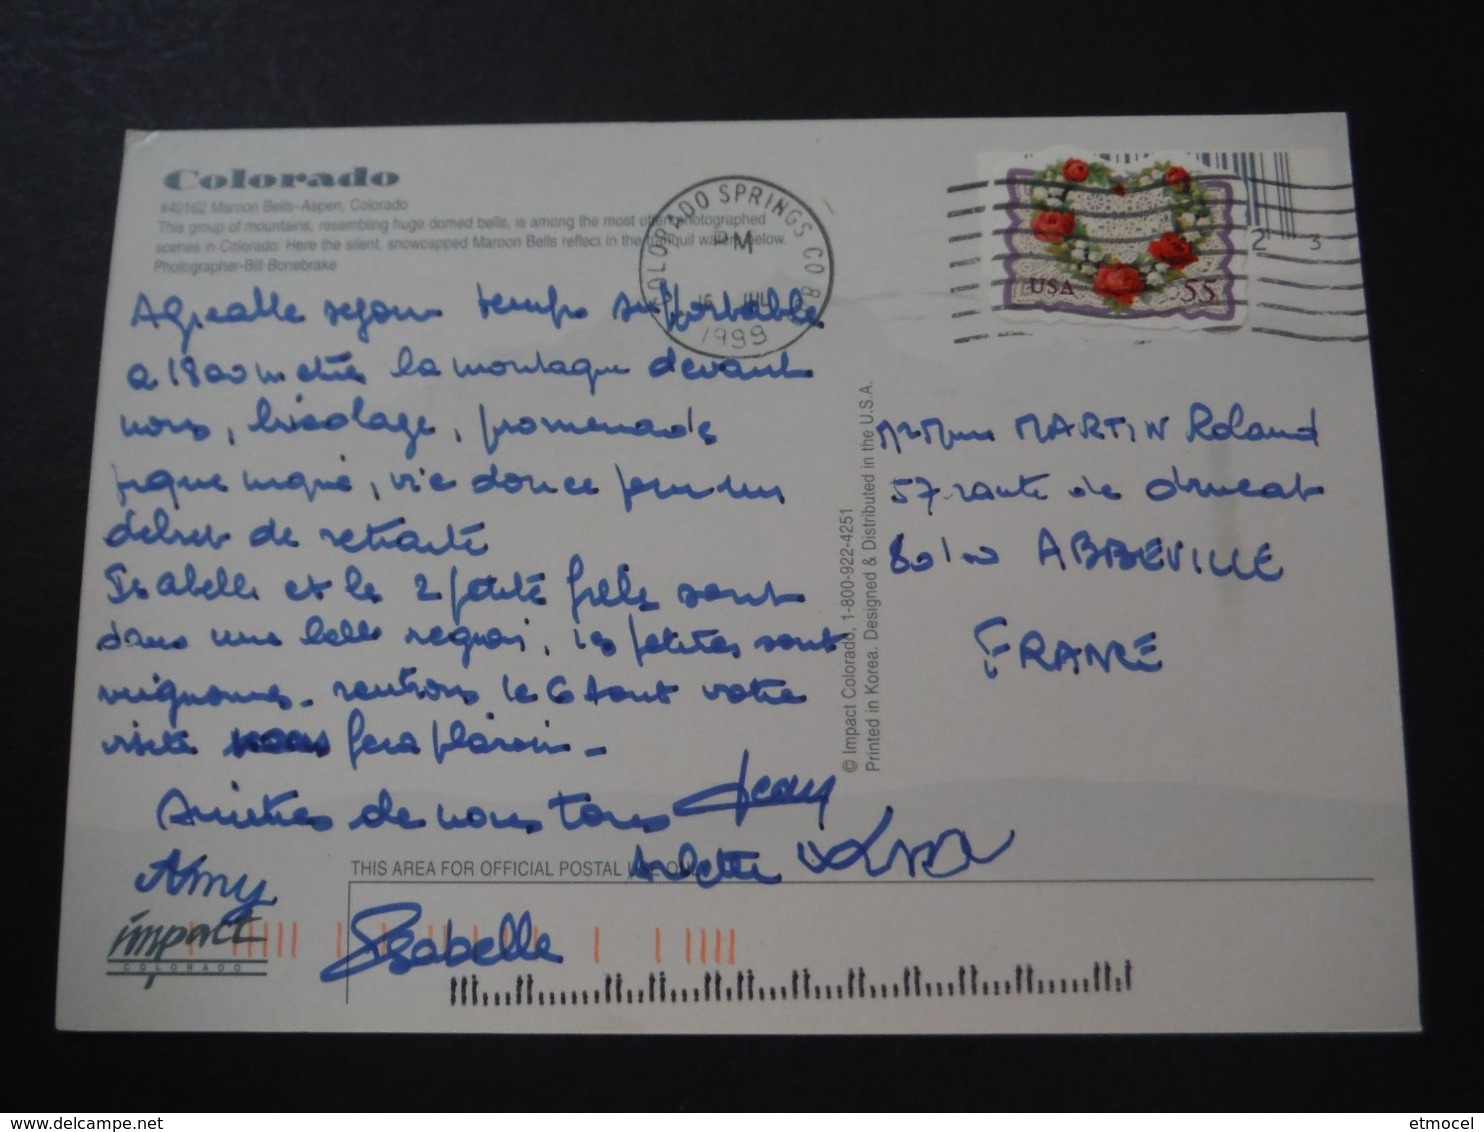 Colorado
#40162 Maroon Bells-Aspen, Colorado
This group of mountains, resembling huge domed bells, is among the most often photographed
scenes in Colorado. Here the silent, snowcapped Maroon Bells reflect in the tranquil waters below.
Photographer-Bill Bonebrake
COLORADO SPRINGS CO 8
PM
16 JUL
1999
USA 55
2 3
Agreable sejour temps supportable
a 1800 metres la montagne devant
nous, bricolage, promenade
pique nique, vie douce pour un
debut de retraité
Isabelle et les 2 petites filles sont
dans une belle region, les petites sont
mignonnes - rentrons le 6 Aout votre
visite fera plaisir -
Amitiés de nous tous Jean
Arlette Lisa
Amy
Isabelle
MARTIN Roland
57 route de drucat
80100 ABBEVILLE
FRANCE
© Impact Colorado, 1-800-922-4251
Printed in Korea. Designed & Distributed in the U.S.A.
THIS AREA FOR OFFICIAL POSTAL USE ONLY
impact
COLORADO
delcampe.net
etmocel